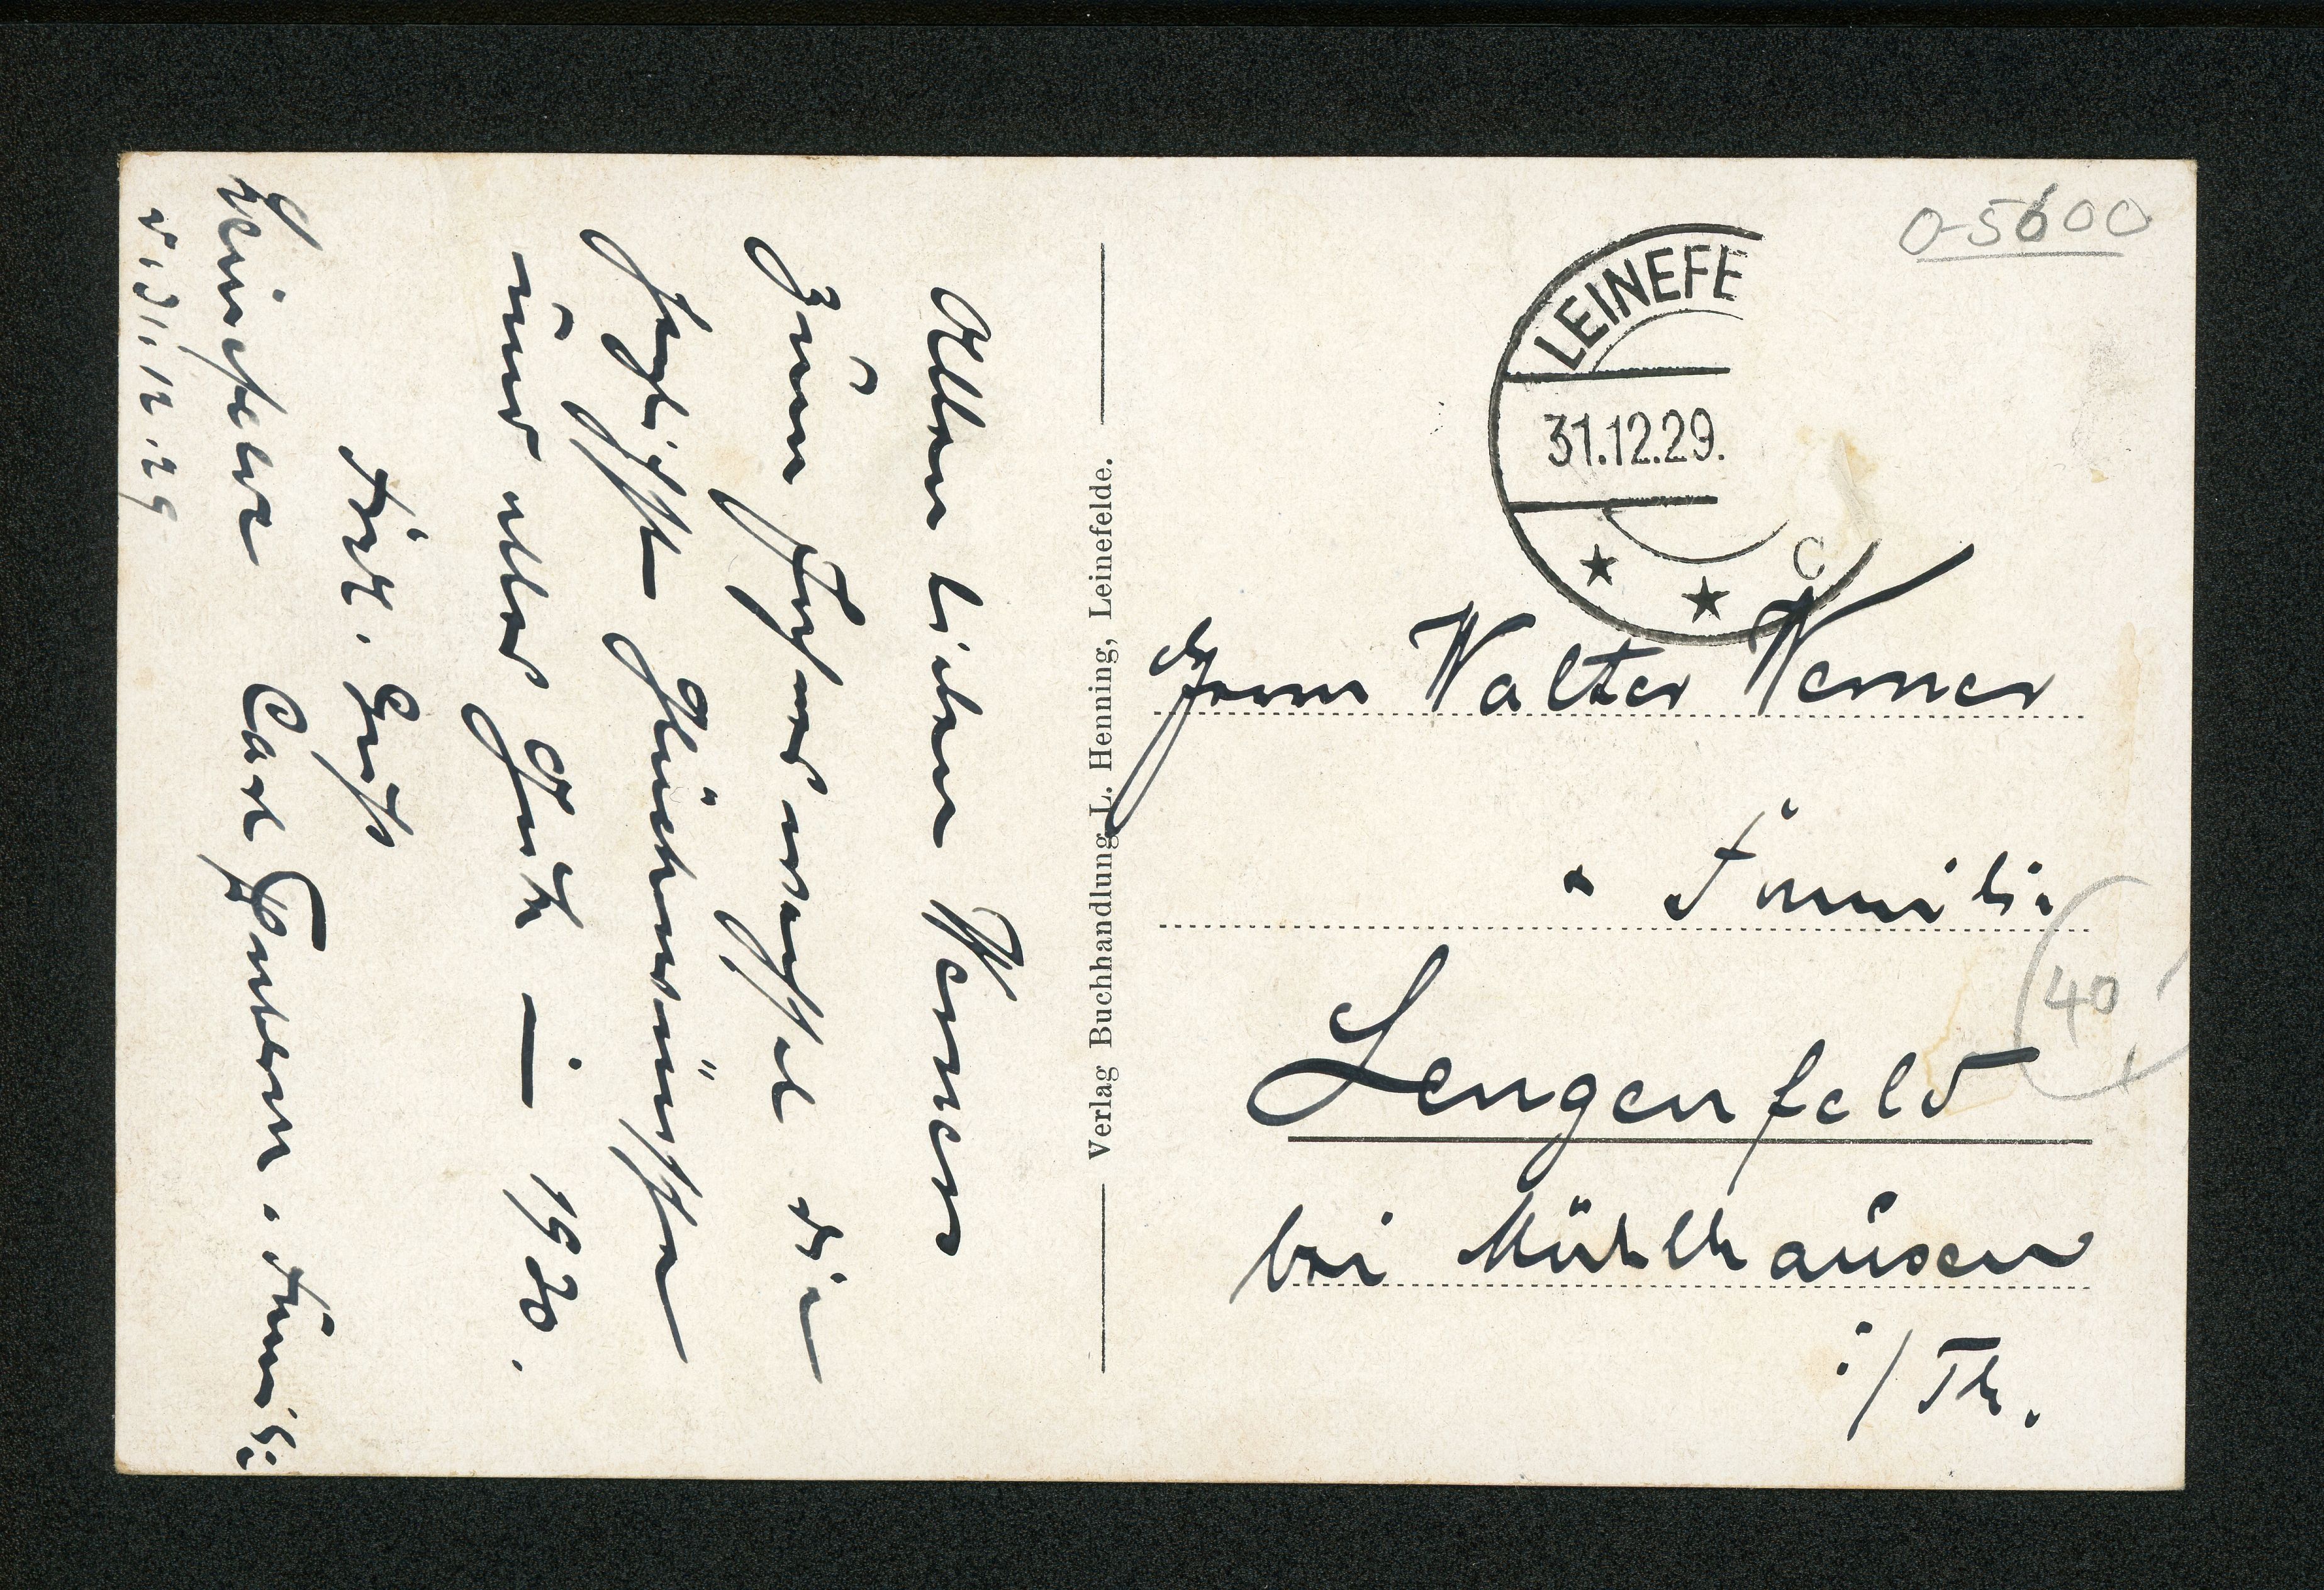 Allen lieben Werners
zum Jahreswechsel die
herzlichsten Glückwünsche
und alles Gute – i – 1930.
Gruß
Leinefelde Carl u. Familie
31.12.29
Verlag Buchhandlung L. Henning, Leinefelde.
0-5600
LEINEFE
31.12.29.
C
Herrn Walter Werner
u. Familie
40
Lengenfeld
bei Mühlhausen
i/Th.